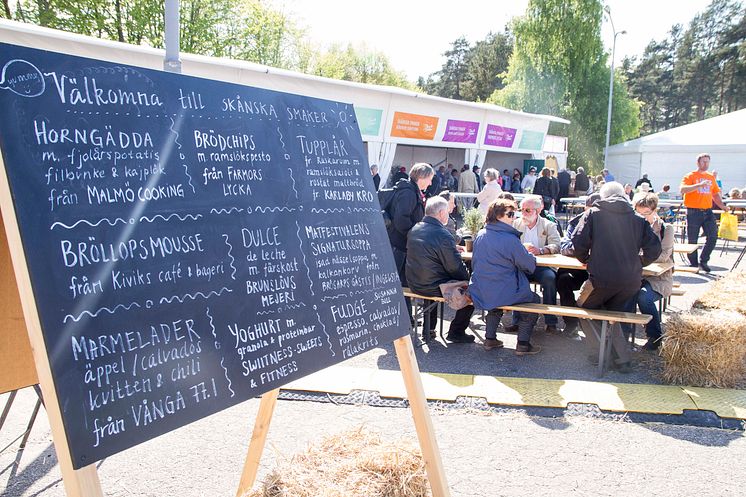 Yummy
Välkomna till SKÅNSKA SMAKER
HORNGÄDDA
m. fjolårspotatis
fillövnke & kajplök
från MALMÖ COOKING
BRÖDCHIPS
m. ramslökspesto
från FARMORS
LYCKA
TUPPLÅR
fr Raskarum m.
ramslökscreme &
rostat maltbröd
från KARLABY KRO
BRÖLLOPSMOUSSE
från Kiviks café & bageri
DULCE
de leche
m. färskost
BRUNSLÖVS
MEJERI
MATFESTIVALENS
SIGNATURSOPPA
isad nässelsoppa m.
kalkonkorv från
BRÖSARPS GÄSTIS/INGELSTA
MARMELADER
äppel /calvados
kvitten & chili
från VÅNGA 77.1
YOGHURT m.
granola & proteinpulver
SWIITNESS-SWEETS
& FITNESS
FUDGE från SUSANNA
espresso, calvados/
rosmarin, choklad/
rålakrits